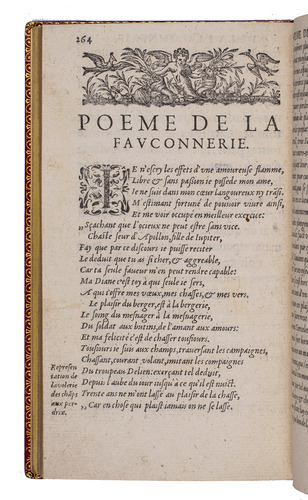 264
POEME DE LA
FAVCONNERIE.
IE n'escry les effets d'vne amoureuse flamme,
Libre & sans pasion ie possede mon ame,
Ie ne suis dans mon cœur langoureux ny trāsi.
M'estimant fortuné de pouuoir viure ainsi,
Et me voir occupé en meilleur excercice:
„Sçachant que l'ocieux ne peut estre sans vice.
Chaste sœur d'Apollon, fille de Iupiter,
Fay que par ce discours ie puisse reciter
Le deduit que tu as si cher, & aggreable,
Car ta seule faueur m'en peut rendre capable:
Ma Diane c'est toy à qui seule ie sers,
A qui s'offre mes vœux, mes chasses, & mes vers.
Le plaisir du berger, est à la bergerie,
Le soing du mesnager à la mesnagerie,
Du soldat aux butins, de l'amant aux amours:
Et ma felicité c'est de chasser tousiours.
Tousiours ie suis aux champs, trauersant les campaignes,
Chassant, courant, volant, imitant les compaignes
Du trouppeau Delien: exerçant tel deduit,
Depuis l'aube du iour iusqu'à ce qu'il est nuict.
Trente ans ne m'ont lassé au plaisir de la chasse,
„Car en chose qui plaist iamais on ne se lasse.
Represen
tation de
la volerie
des chāps
aux per-
drix.